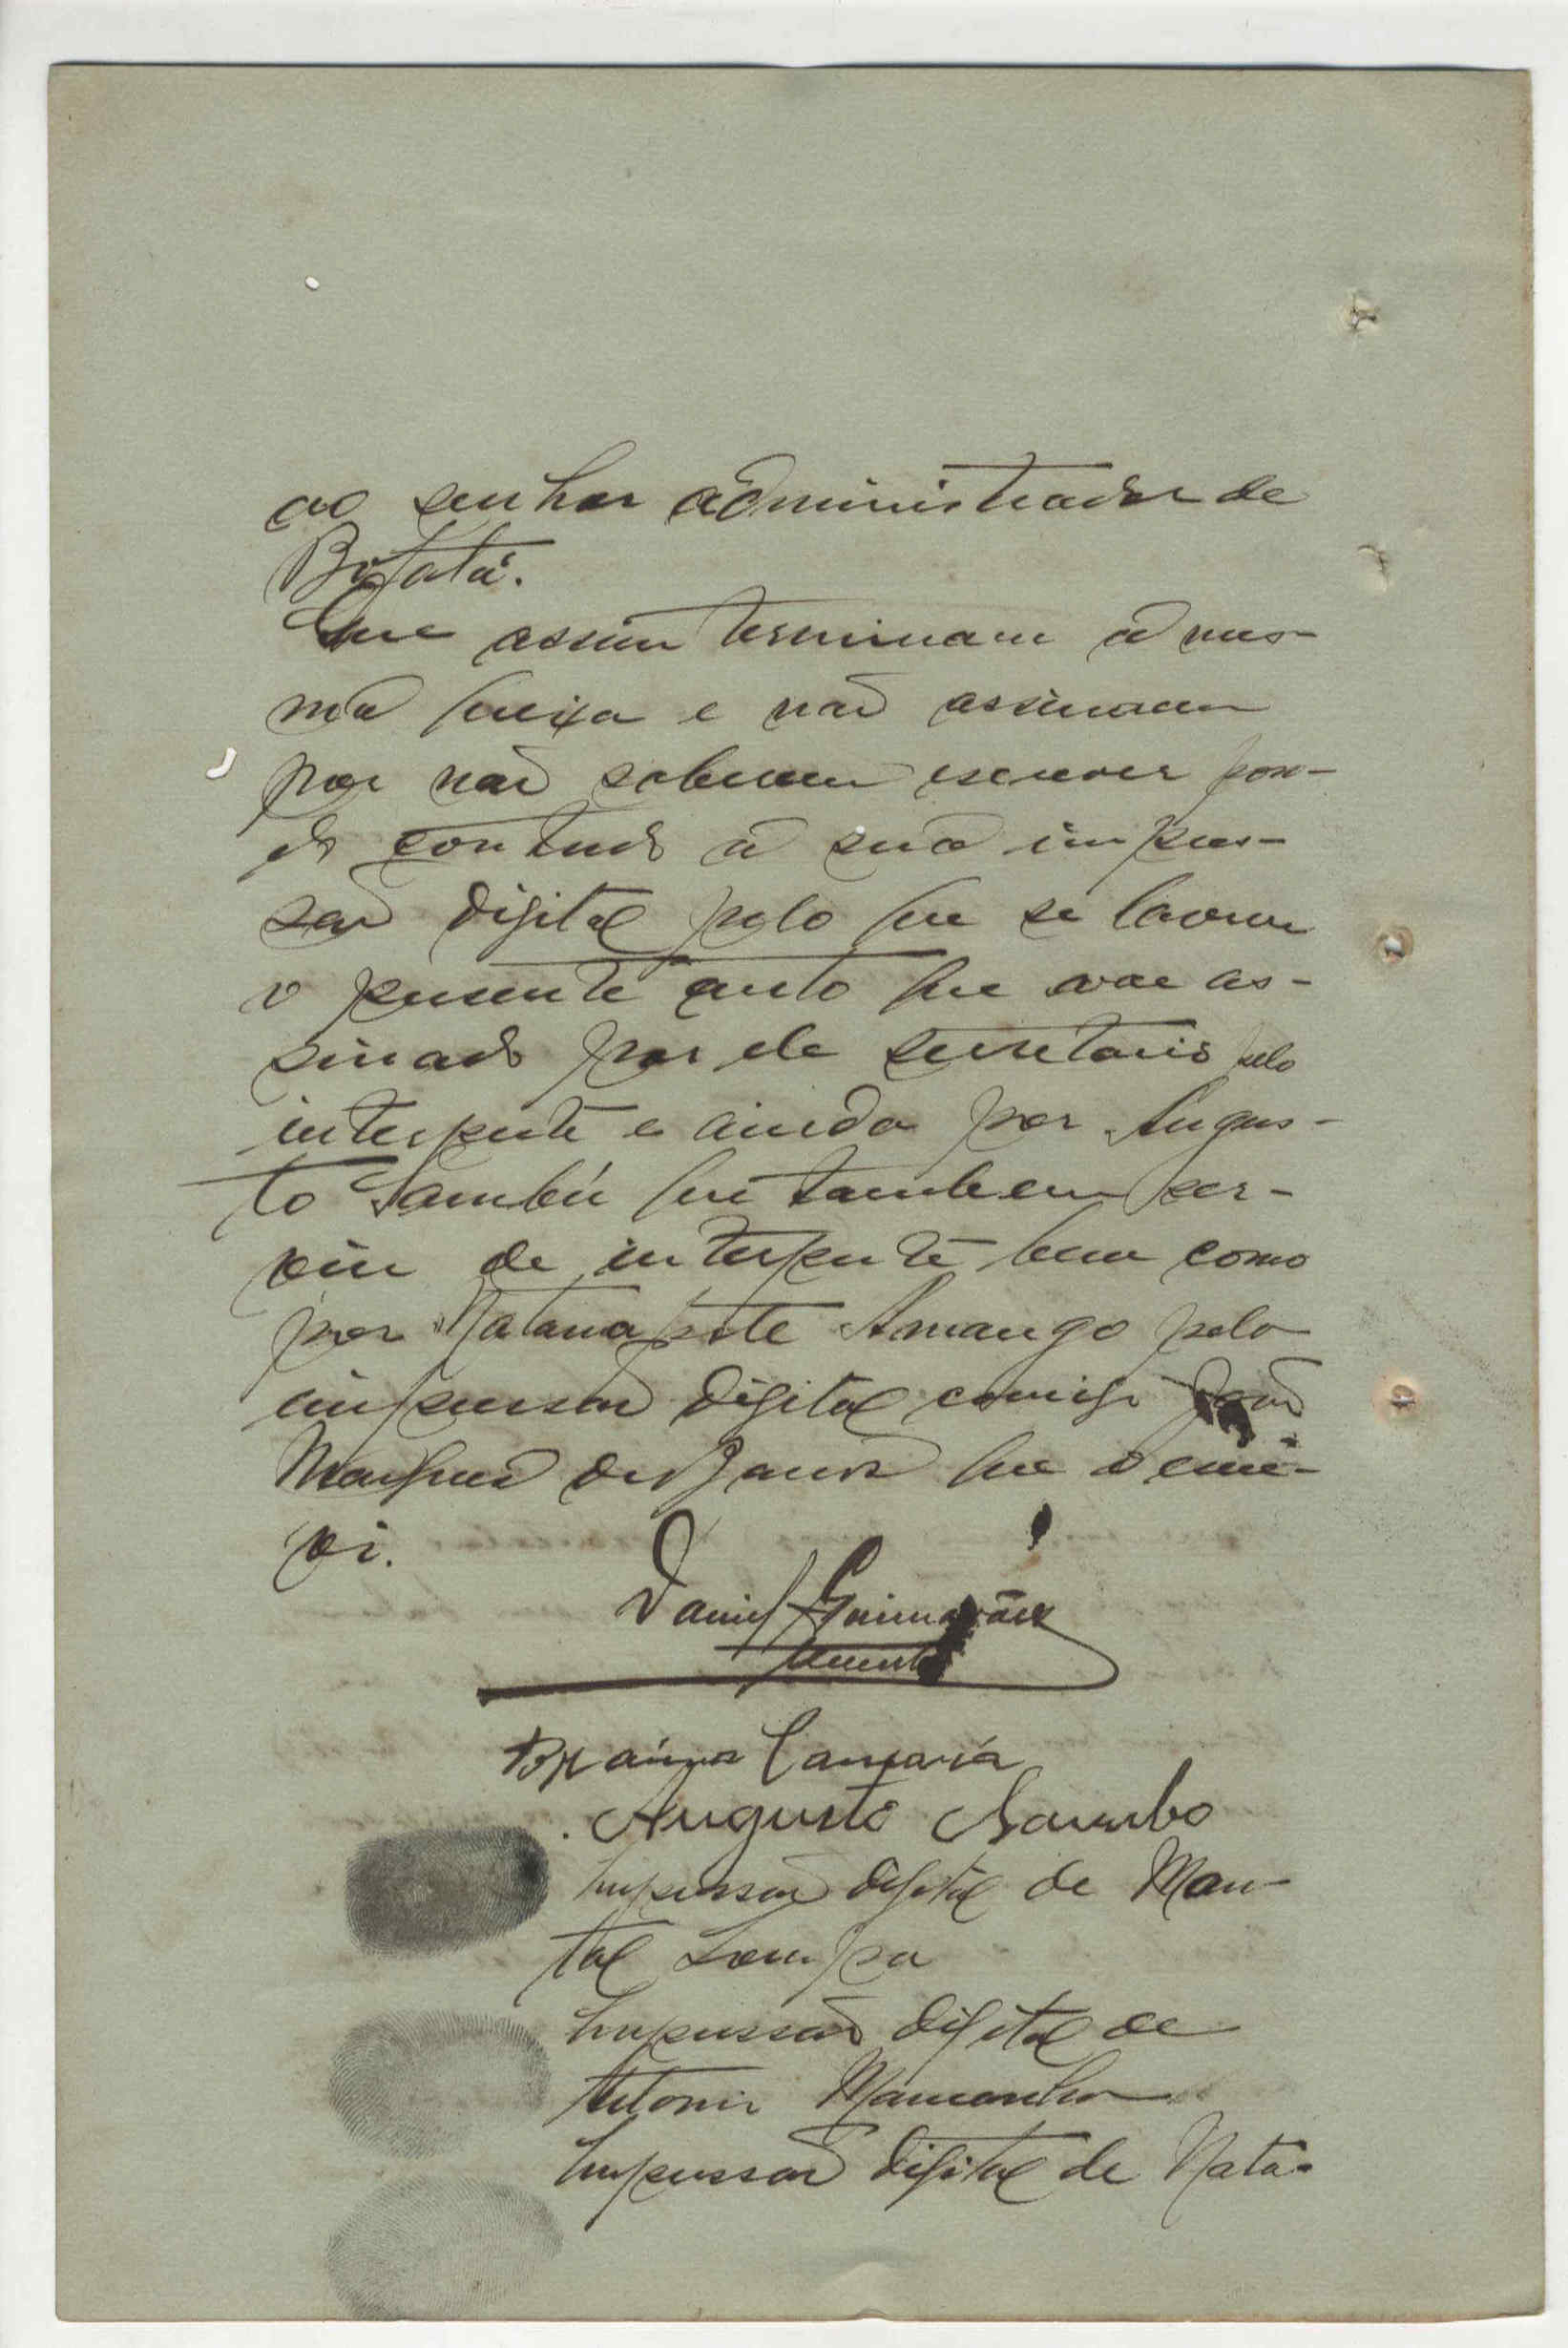 ao senhor administrador de
Bafatá.
Que assim terminam a mes-
ma queixa e não assinam
por não saberem escrever pon-
do contudo a sua impres-
são digital pelo que se lavrou
o presente auto que vae as-
sinado por ele secretario pelo
interprete e ainda por Augus-
to Sambú que tambem ser-
viu de interprete bem como
por Natana pela
impressão digital comigo João
que o escre-
vi.
Daniel Guimarães

Augusto Sambo
Impressão digital de Man-
tal
Impressão digital de
Antonio
Impressão digital de Nata-